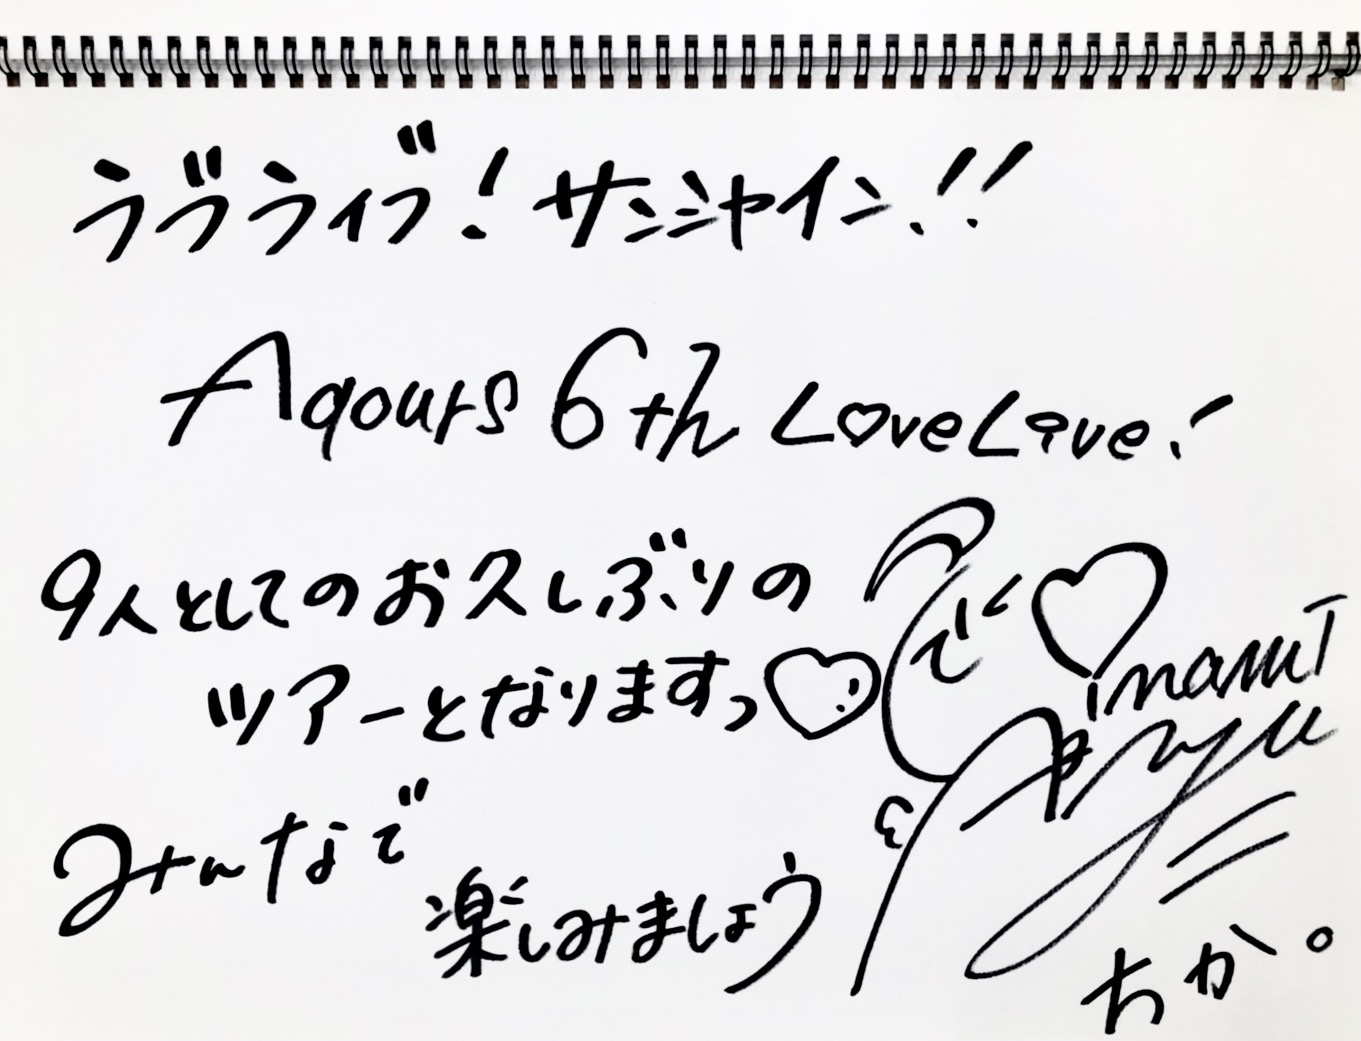 ラブライブ!サンシャイン!!
Aqours 6th LoveLive!
9人としてのお久しぶりの
ツアーとなりますっ♡
みんなで
楽しみましょう
inami
Anju
ちか。